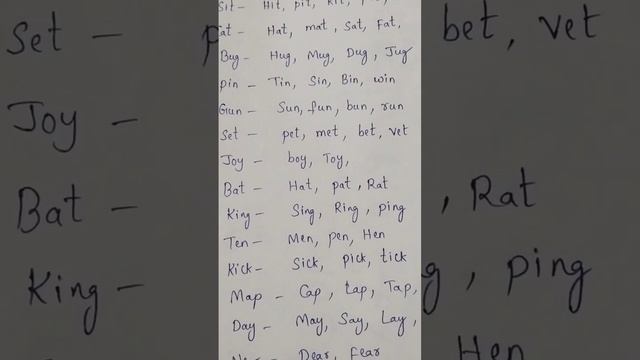 Sit - Hit, pit, kit,
Cat - Hat, mat, Sat, Fat,
Bug - Hug, Mug, Dug, Jug
pin - Tin, Sin, Bin, win
Gun - Sun, fun, bun, run
Set - pet, met, bet, vet
Joy - boy, Toy,
Bat - Hat, pat, Rat
King - Sing, Ring, ping
Ten - Men, pen, Hen
Kick - Sick, pick, tick
Map - Cap, tap, Tap,
Day - May, Say, Lay,
Dear, Fear
Set - bet, vet
Joy -
Bat - , Rat
King - g, ping
Hen